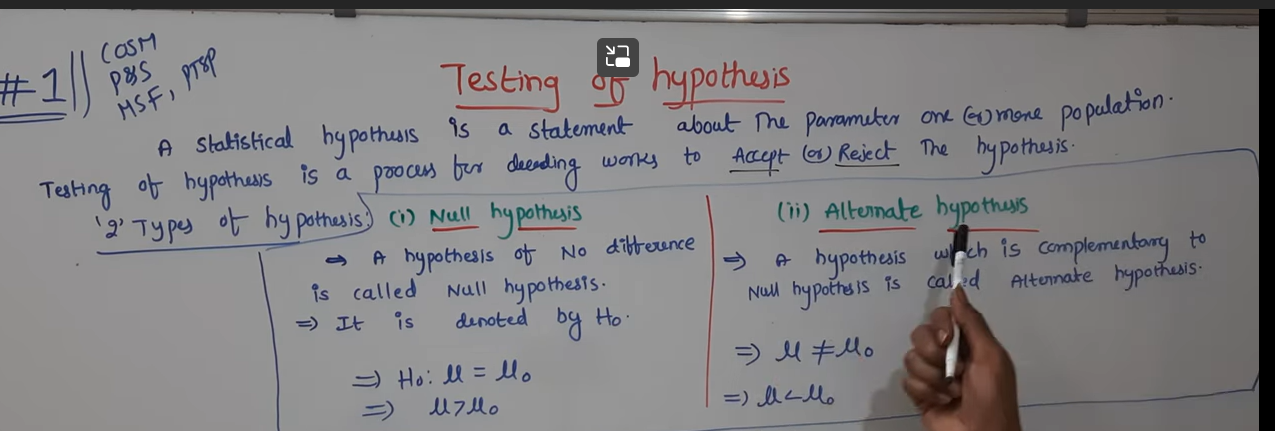 #1
COSM
P&S
MSF, PTSP
Testing of hypothesis
A statistical hypothesis is a statement about The parameter one (or) more population.
Testing of hypothesis is a process for deciding works to Accept (or) Reject The hypothesis.
'2' Types of hypothesis:
(i) Null hypothesis
⇒ A hypothesis of No difference
is called Null hypothesis.
⇒ It is denoted by H₀.
⇒ H₀: μ = μ₀
⇒ μ > μ₀
(ii) Alternate hypothesis
⇒ A hypothesis which is complementary to
Null hypothesis is called Alternate hypothesis.
⇒ μ ≠ μ₀
⇒ μ < μ₀